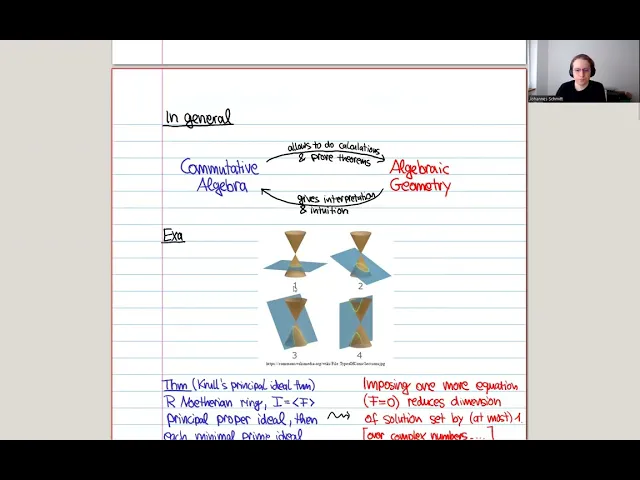 Johannes Schmitt
In general
allows to do calculations
& prove theorems
Commutative
Algebra
Algebraic
Geometry
gives interpretation
& intuition
Exa
1
2
3
4
Thm (Krull's principal ideal thm)
R Noetherian ring, I = <F>
principal proper ideal, then
each minimal prime ideal
Imposing one more equation
(F=0) reduces dimension
of solution set by (at most) 1
[over complex numbers...]